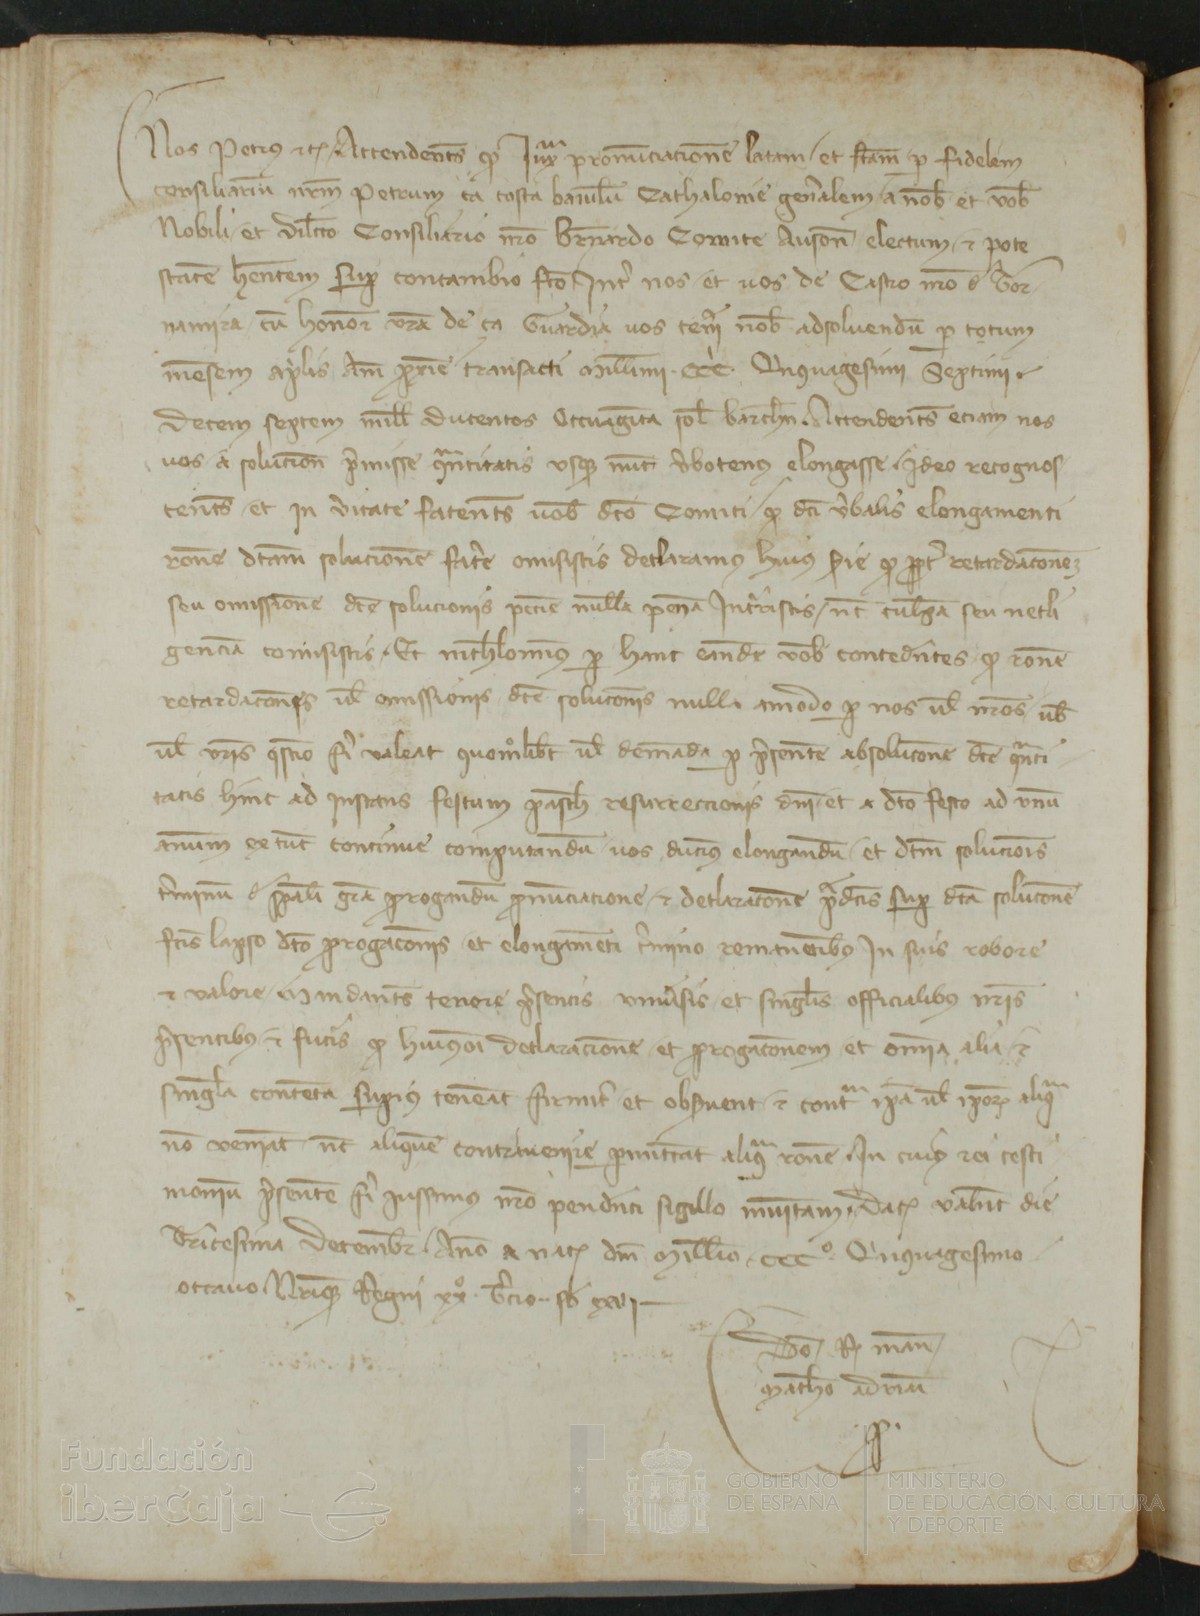 Nos Petrus etc. Attendentes quod Iuxta pronunciacionem latam et factam per fidelem
consiliarium nostrum Petrum ça costa baiulum Cathalonie generalem a nobis et vobis
Nobili et dilecto Consiliario nostro Bernardo Comite Ausone electum et pote
statem habentem super concambio facto Inter nos et vos de Castro nostro de
cum honore vestra de ça Guardia vos nobis adsolvendum per totum
mensem aprilis Anni proxime transacti Millesimi CCC Quinquagesimi Septimi
Decem septem mille Ducentos sol barchn Attendentes eciam nos
vos a solucione premisse quantitatis usque nunc verbotenus elongasse Ideo recognos
centes et in veritate fatentes vobis dicto Comiti quod dicti verbalis elongamenti
racione dictam solucionem facere omisistis declaramus huius serie quod propter retardacionem
seu omissionem dicte solucionis peccunie nullam penam Incurristis nec culpam seu necli
genciam comisistis Et nichilominus per hanc eandem vobis concedentes quod racione
retardacionis vel omissionis dicte solucionis nulla amodo per nos vel nostros vobis
vel vestris questio fieri valeat quomodolibet vel demanda per presentem absolucionem dicte quanti
tatis hinc ad instans festum pasche resurreccionis domini et a dicto festo ad unum
annum ex tunc continue computandum vos ducimus elongandum et dictum solucionis
terminum de speciali gracia prorogandum pronunciacione et declaracione predictis super dicta solucione
factis lapso dicto prorogacionis et elongamenti termino remanentibus In suis robore
et valore Mandantes tenore presentis universis et singulis officialibus nostris
presentibus et futuris quod huiusmodi declaracionem et prorogacionem et omnia alia et
singula contenta superius teneant firmiter et observent et contra ipsa vel ipsorum aliqua
non veniant nec aliquem contravenire permittant aliqua racione In cuius rei testi
monium presentem fieri iussimus nostro pendenti sigillo munitam Datum Valencie die
Tricesima Decembris Anno a nativitate domini Millesimo CCCº Quinquagesimo
octavo Nostrique Regni xxº tercio
Dominus Rex mandavit
Matheo adriani